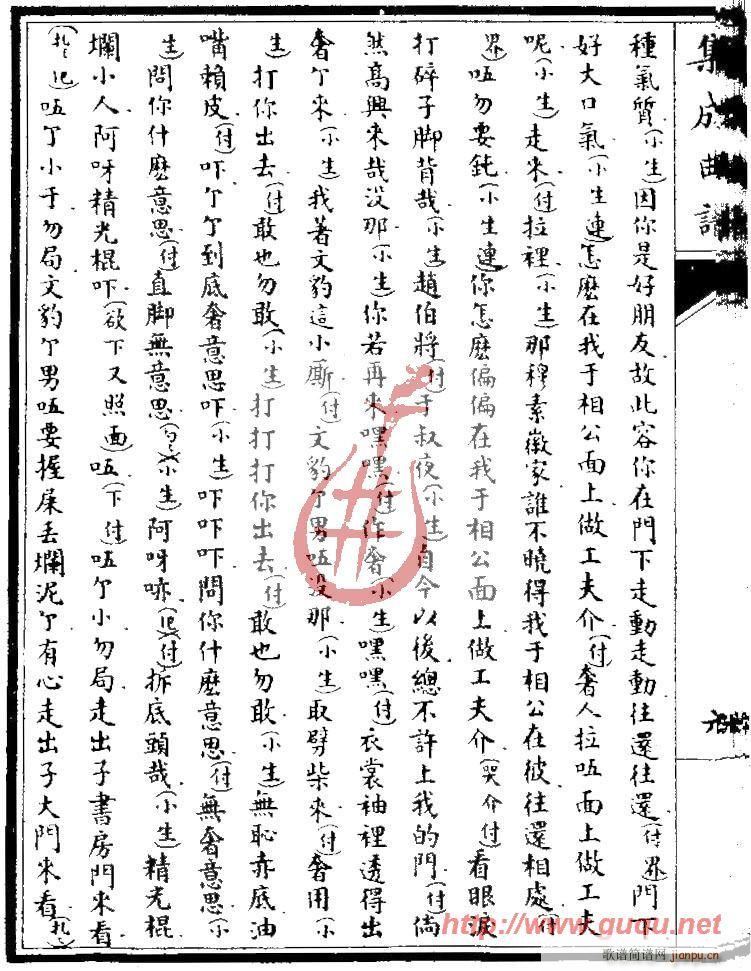 集成曲譜
種氣質(小生)因你是好朋友故此容你在門下走動走動往還往還(付界)門下
好大口氣(小生連)怎麽在我于相公面上做工夫介(付)奢人拉咗面上做工夫
呢(小生)走来(付)拉裡(小生)那穆素徽家誰不曉得我于相公在彼往還相處(付
界)咗勿要鈍(小生連)你怎麽偏偏在我于相公面上做工夫介(哭介付)看眼淚
打碎子脚背哉(小生)趙伯將(付)于叔夜(小生)自今以後總不許上我的門(付)倘
然高興来哉没那(小生)你若再来嘿嘿(付)作奢(小生)嘿嘿(付)衣裳袖裡透得出
奢个来(小生)我著文豹這小厮(付)文豹个男咗没那(小生)取劈柴来(付)奢用(小
生)打你出去(付)敢也勿敢(小生)打打打你出去(付)敢也勿敢(小生)無恥赤底油
嘴賴皮(付)吓个个到底奢意思吓(小生)吓吓吓問你什麽意思(付)無奢意思(小
生)問你什麽意思(付)直脚無意思(小生)阿呀㖡(付)拆底頭哉(小生)精光棍
爛小人阿呀精光棍吓(欲下又照面)咗(下付)咗个小勿局走出子書房門来看
咗个小于勿局文豹个男咗要握屎丢爛泥个有心走出子大門来看
http://www.guqu.net
歌谱简谱网 jianpu.cn